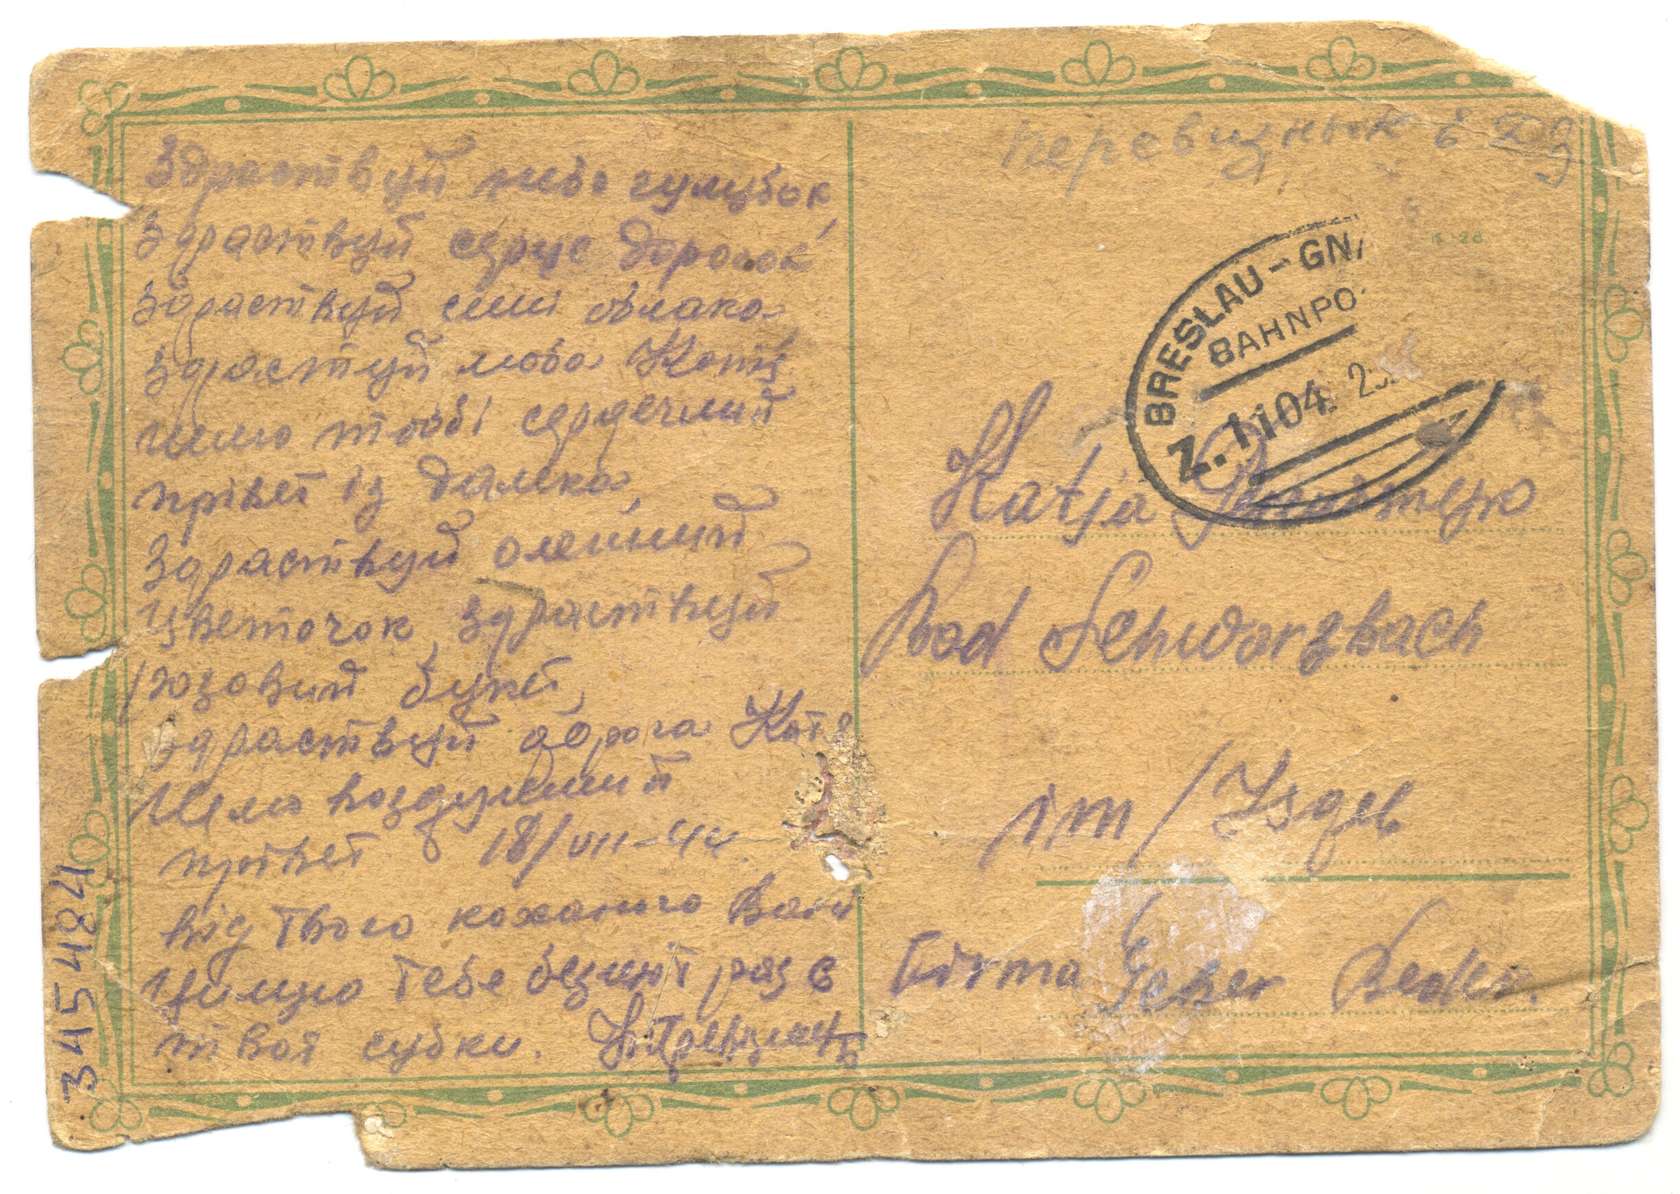 Здраствуй небо гулубок
Здраствуй серце дорогой
Здраствуй сині облака
Здраствуй люба Катя
шлю тобі сердечний
прівет із далека
Здраствуй олейний
Цветочок, здраствуй
розовий букет,
Здраствуй дорога Катя
Шлю воздушний
прівет 18/VII-44
від твого коханого Вані
Цілую тебе безліч раз в
твої губки.
345484
BRESLAU-GNA
BAHNPO
Z.11104
Katja
Bad Schwarzbach
im/Isgeb
Firma